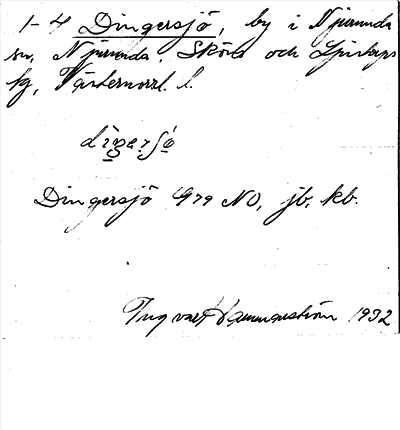 1-4 Dingersjö, by i Njurunda
sn, Njurunda, Sköns och Ljustorps
tg, Västernorrl. l.
Dingersjö 979 NO, jb. kb.
Ingvar Hammarström 1932